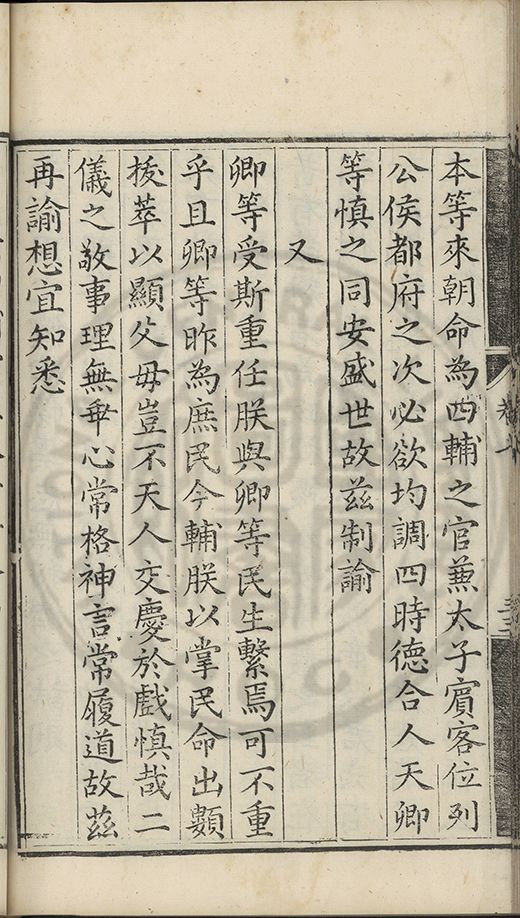 本等來朝命為四輔之官蒹太子賔客位列
公侯都府之次必欲均調四時德合人天卿
等慎之同安盛世故兹制諭
又
卿等受斯重任朕與卿等民生繫焉可不重
乎且卿等昨為庶民今輔朕以掌民命出類
拔萃以顯父母豈不天人交慶於戲慎哉二
儀之敬事理無乖心常格神言常履道故茲
再諭想宜知悉